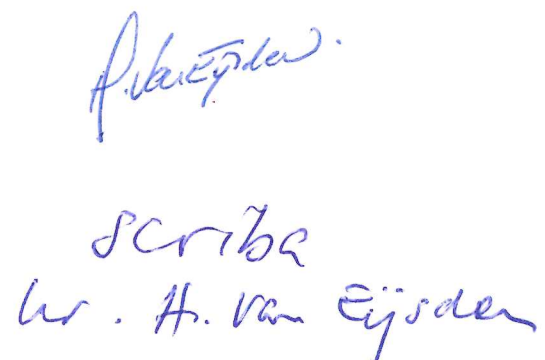 A. van Eijsden.
scriba
hr. A. van Eijsden